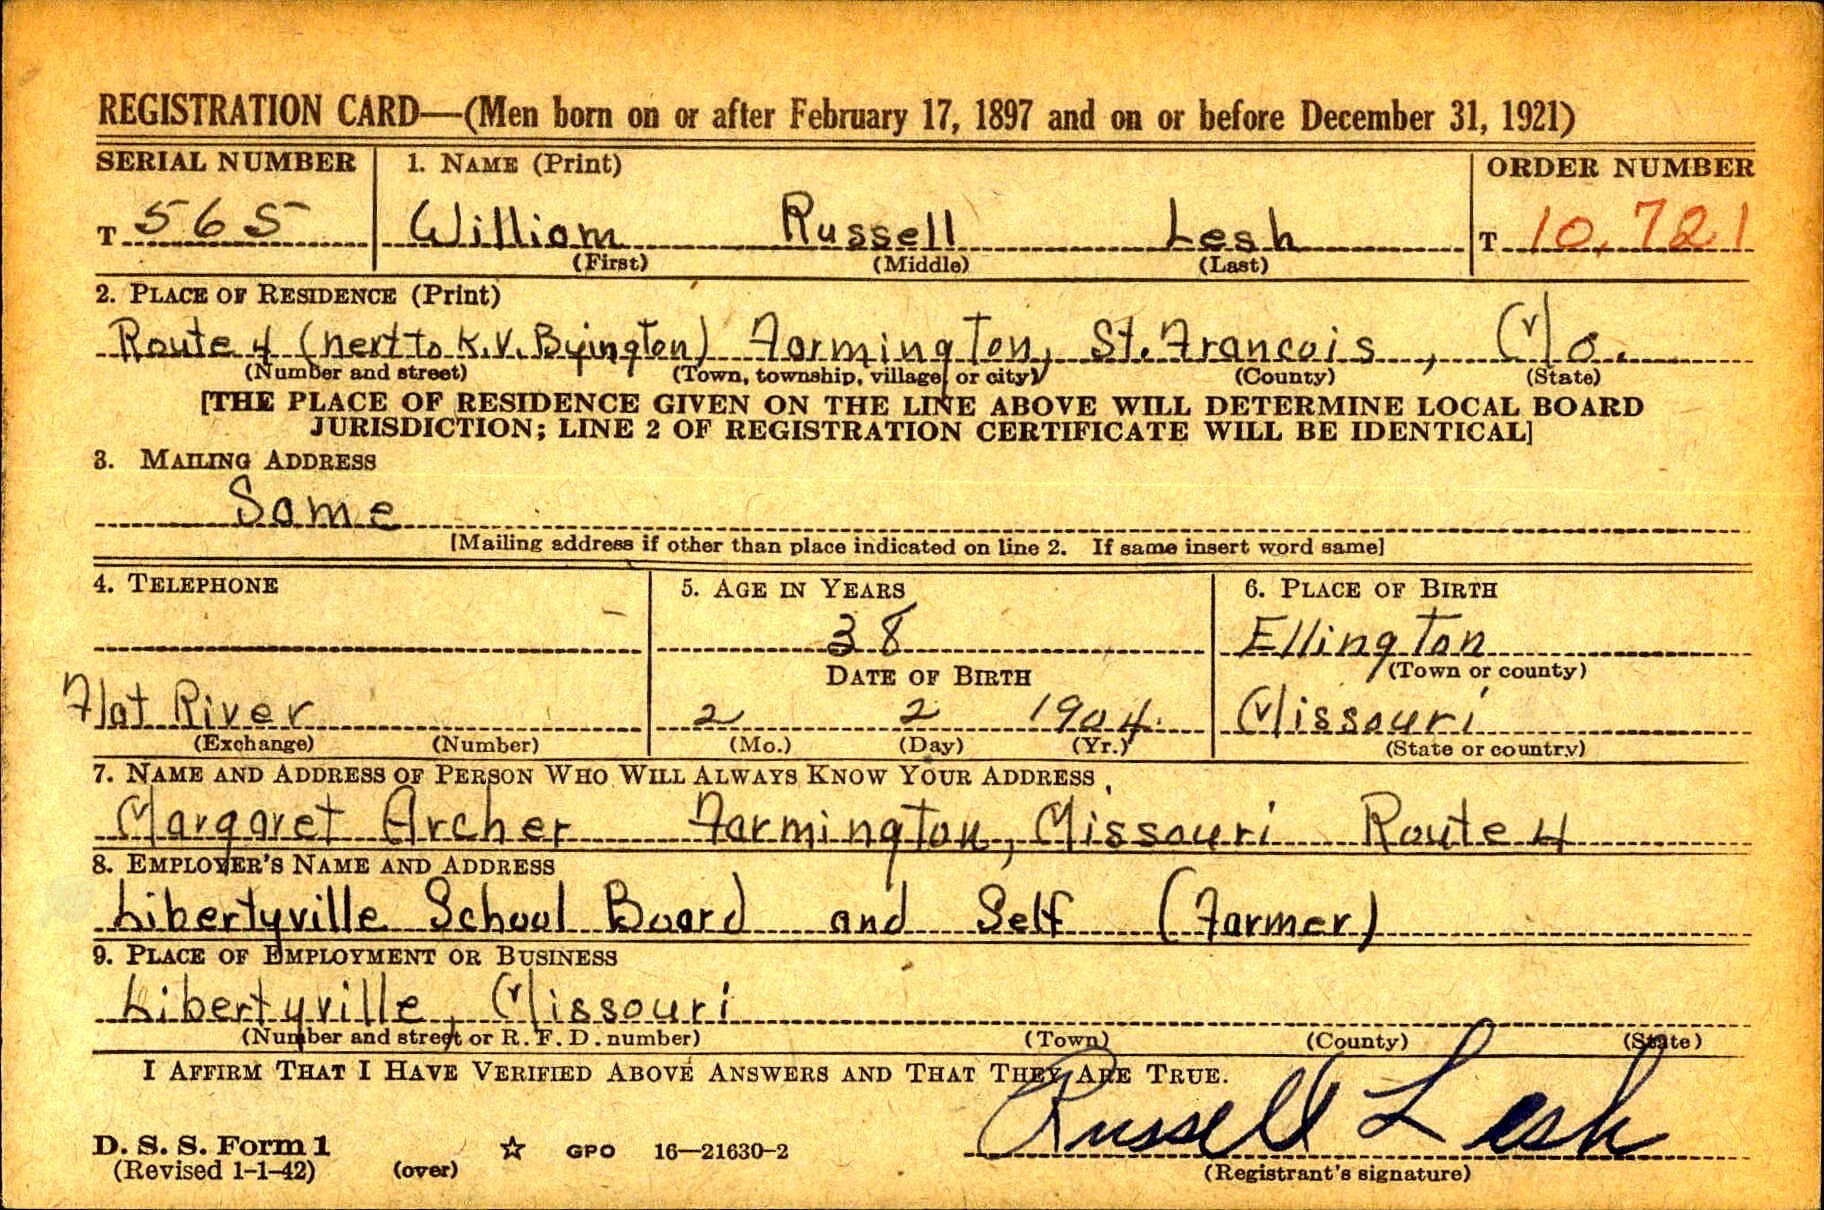 REGISTRATION CARD—(Men born on or after February 17, 1897 and on or before December 31, 1921)
SERIAL NUMBER 1. NAME (Print) ORDER NUMBER
T 565 William Russell Lesh T 10,721
(First) (Middle) (Last)
2. PLACE OF RESIDENCE (Print)
Route 4 (next to K.V. Byington) Farmington, St. Francois, Mo.
(Number and street) (Town, township, village, or city) (County) (State)
[THE PLACE OF RESIDENCE GIVEN ON THE LINE ABOVE WILL DETERMINE LOCAL BOARD
JURISDICTION; LINE 2 OF REGISTRATION CERTIFICATE WILL BE IDENTICAL]
3. MAILING ADDRESS
Same
[Mailing address if other than place indicated on line 2. If same insert word same]
4. TELEPHONE 5. AGE IN YEARS 6. PLACE OF BIRTH
38 Ellington
DATE OF BIRTH (Town or county)
Flat River 2 2 1904. Missouri
(Exchange) (Number) (Mo.) (Day) (Yr.) (State or country)
7. NAME AND ADDRESS OF PERSON WHO WILL ALWAYS KNOW YOUR ADDRESS
Margaret Archer Farmington, Missouri Route 4
8. EMPLOYER'S NAME AND ADDRESS
Libertyville School Board and Self (Farmer)
9. PLACE OF EMPLOYMENT OR BUSINESS
Libertyville, Missouri
(Number and street or R. F. D. number) (Town) (County) (State)
I AFFIRM THAT I HAVE VERIFIED ABOVE ANSWERS AND THAT THEY ARE TRUE.
Russell Lesh
D. S. S. Form 1
(Revised 1-1-42) (over) ☆ GPO 16—21630-2 (Registrant's signature)